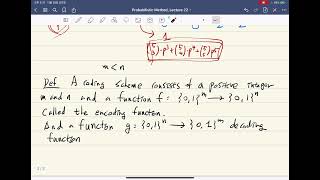 Probabilistic Method, Lecture 22
1
m < n
Def A coding scheme consists of a positive integer
m and n and a function f: {0,1}^m → {0,1}^n
Called the encoding function.
And a function g: {0,1}^n → {0,1}^m decoding
function